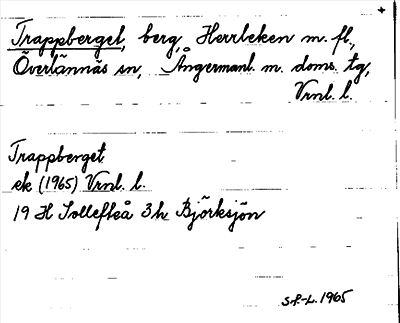 Trappberget, berg, Herrleken m. fl.,
Överlännäs sn, Ångermanl. m. doms. tg,
Vrnl. l.
Trappberget
ek (1965) Vrnl. l.
19 H Sollefteå 3 h Björksjön
S.f.-L. 1965